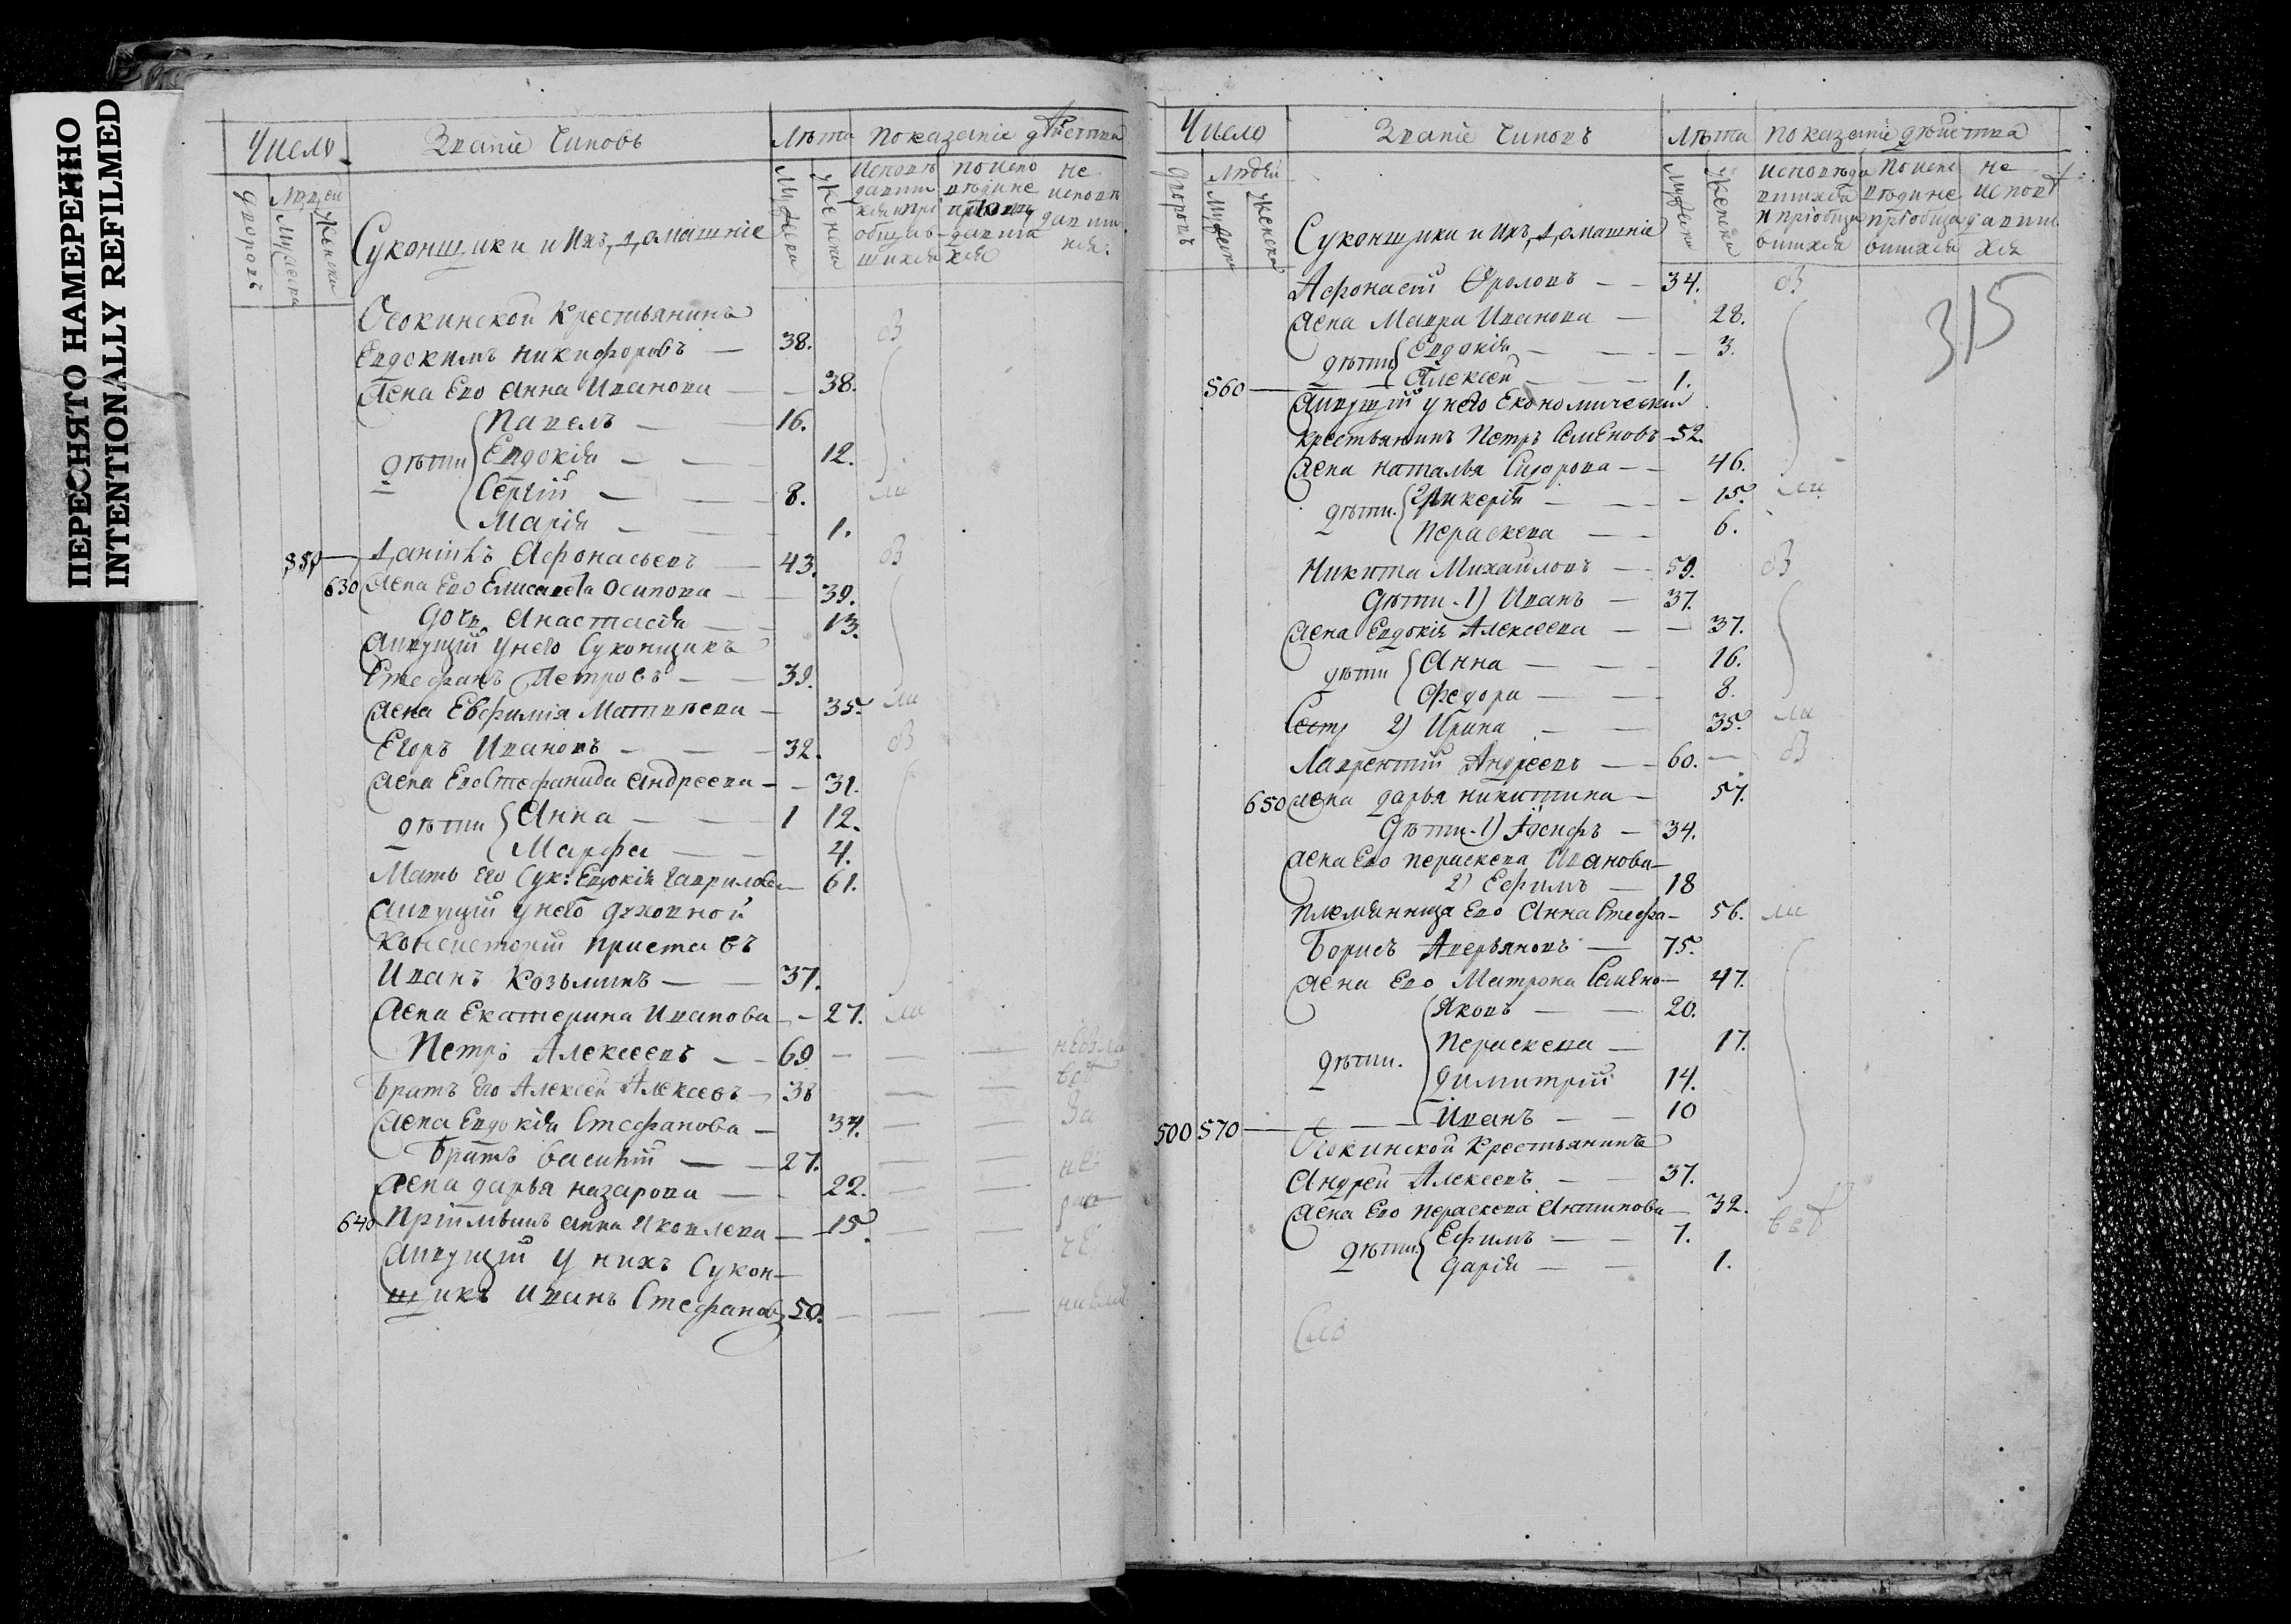 ПЕРЕСНЯТО НАМЕРЕННО
INTENTIONALLY REFILMED
Число
Званіе Чиновъ
Лѣта
Показаніе дѣйства
дворовъ
Людей
Мужеска
Женска
Суконщики и ихъ домашніе
Мужеска
Женска
Исповѣ
давши
хся и прі
общав-
шихся
По испо
вѣди не
хся
не
исповѣ
давши
хся.
Осокинской Крестьянинъ
Евдокимъ Никифоровъ — 38.
Жена Ево Анна Иванова — — 38.
дѣти
Павелъ — 16.
Евдокія — — 12.
Сергій — — 8.
Марія — — 1.
Даніилъ Афонасьевъ — 43.
630 Жена Ево Елисавета Осипова — — 39.
дочь Анастасія — — 13.
Живущій у него Суконщикъ
Стефанъ Петровъ — — 39.
Жена Евфимія Матвѣева — 35.
Егоръ Ивановъ — — — 32.
Жена Ево Стефанида Андреева — — 31.
дѣти
Анна — — — 1 12.
Марфа — — 4.
Мать его Сук: Евдокія Гаврилова — 61.
Живущій у него духовной
Консисторіи приставъ
Иванъ Козьминъ — — 37.
Жена Екатерина Иванова — — 27.
Петръ Алексеевъ — — 69 — — —
Братъ Его Алексей Алексеевъ — 38 — —
Жена Евдокія Стефанова — 34. — —
Братъ Василій — — 27. — —
Жена Дарья Назарова — — 22. — —
640 Пріимышъ Анна Яковлева — — 15. — —
Живущій у нихъ Сукон-
щикъ Иванъ Стефановъ 50. — — —
Число
Званіе Чиновъ
Лѣта
Показаніе дѣйства
дворовъ
Людей
Мужеска
Женска
Суконщики и ихъ домашніе
Мужеска
Женска
исповѣда
вшихся
и пріобща
вшихся
По испо
вѣди не
пріобща
вшихся
не
исповѣ
давши
хся
315
Афонасій Фроловъ — — 34.
Жена Мавра Иванова — 28.
дѣти
Евдокія — — — 3.
560 — Алексей — — — 1.
Живущій у него Економическій
крестьянинъ Петръ Семеновъ — 52.
Жена Наталья Сидорова — — 46.
дѣти.
Гликерія — — — 15.
Пераскева — — 6.
Никита Михайловъ — — 59.
Дѣти. 1) Иванъ — 37.
Жена Евдокія Алексеева — — 37.
дѣти
Анна — — — 16.
Федора — — — 8.
2) Ирина — — 35.
Лаврентій Андреевъ — — 60. —
650 Жена Дарья Никитина — 57.
Дѣти. 1) Іосифъ — 34.
Жена Ево Пераскева Иванова —
2) Ефимъ — 18
Племянница Ево Анна Стефа — 56.
Борисъ Аверьяновъ — 75.
Жена Ево Матрона Семено — 47.
дѣти.
Яковъ — — 20.
Пераскева — 17.
Димитрій 14.
500 570 — Иванъ — — 10
Осокинской Крестьянинъ
Андрей Алексеевъ — — 37.
Жена Ево Пераскева Антипова — 32.
дѣти.
Ефимъ — — 7.
Дарія — — 1.